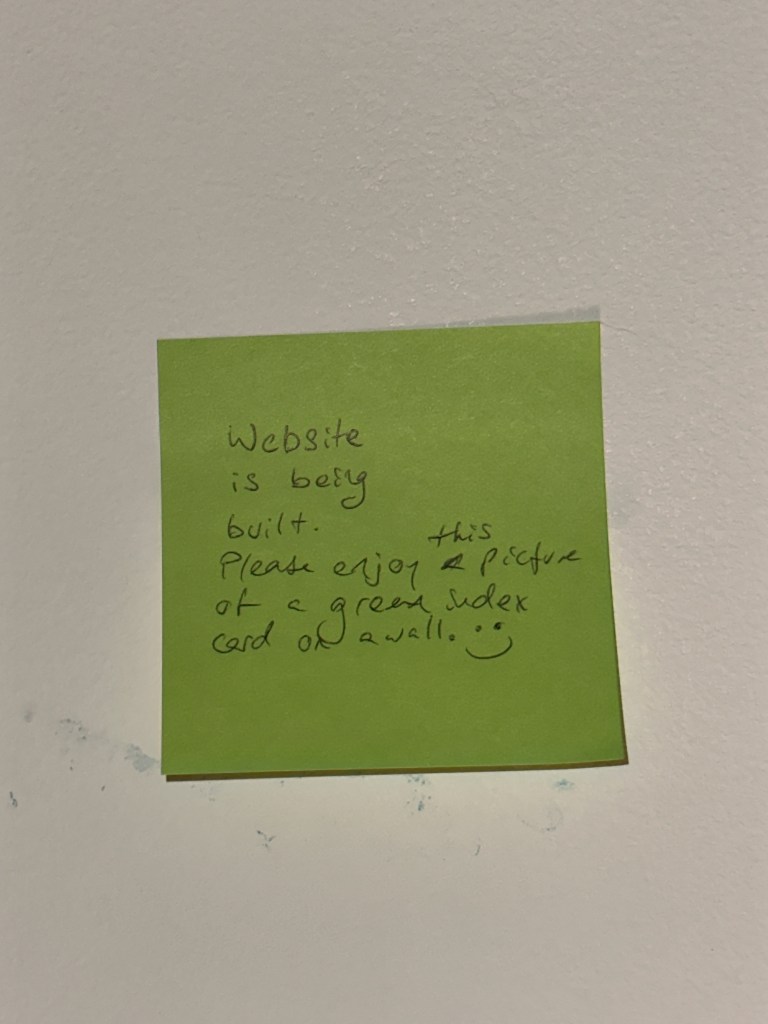 Website
is being
built.
Please enjoy this picture
of a green index
card on a wall. :)